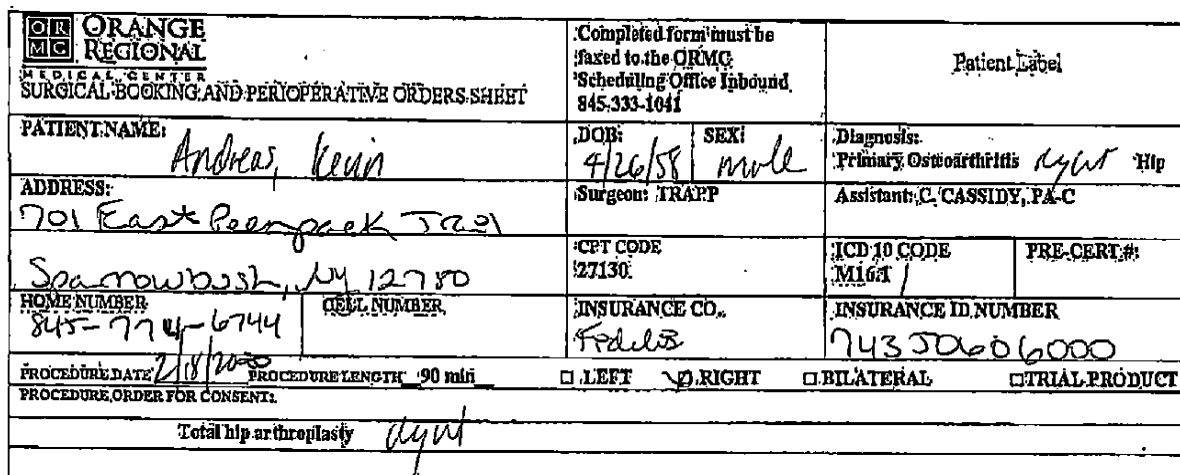 OR ORANGE
MG REGIONAL
MEDICAL CENTER
SURGICAL BOOKING AND PERIOPERATIVE ORDERS SHEET
Completed form must be
faxed to the ORMC
Scheduling Office Inbound
845-333-1041
Patient Label
PATIENT NAME: Andreas, Kevin
DOB: 4/26/58
SEX: male
Diagnosis:
Primary Osteoarthritis right Hip
ADDRESS:
701 East Peenpack Trail
Sparrowbush, NY 12780
Surgeon: TRAPP
Assistant: C. CASSIDY, PA-C
CPT CODE
27130
ICD 10 CODE
M16.1 1
PRE-CERT #:
HOME NUMBER
845-774-6744
CELL NUMBER
INSURANCE CO.
Fidelis
INSURANCE ID NUMBER
743J0606000
PROCEDURE DATE 2/18/2020 PROCEDURE LENGTH 90 min □ LEFT ☑ RIGHT □ BILATERAL □ TRIAL PRODUCT
PROCEDURE ORDER FOR CONSENT:
Total hip arthroplasty right